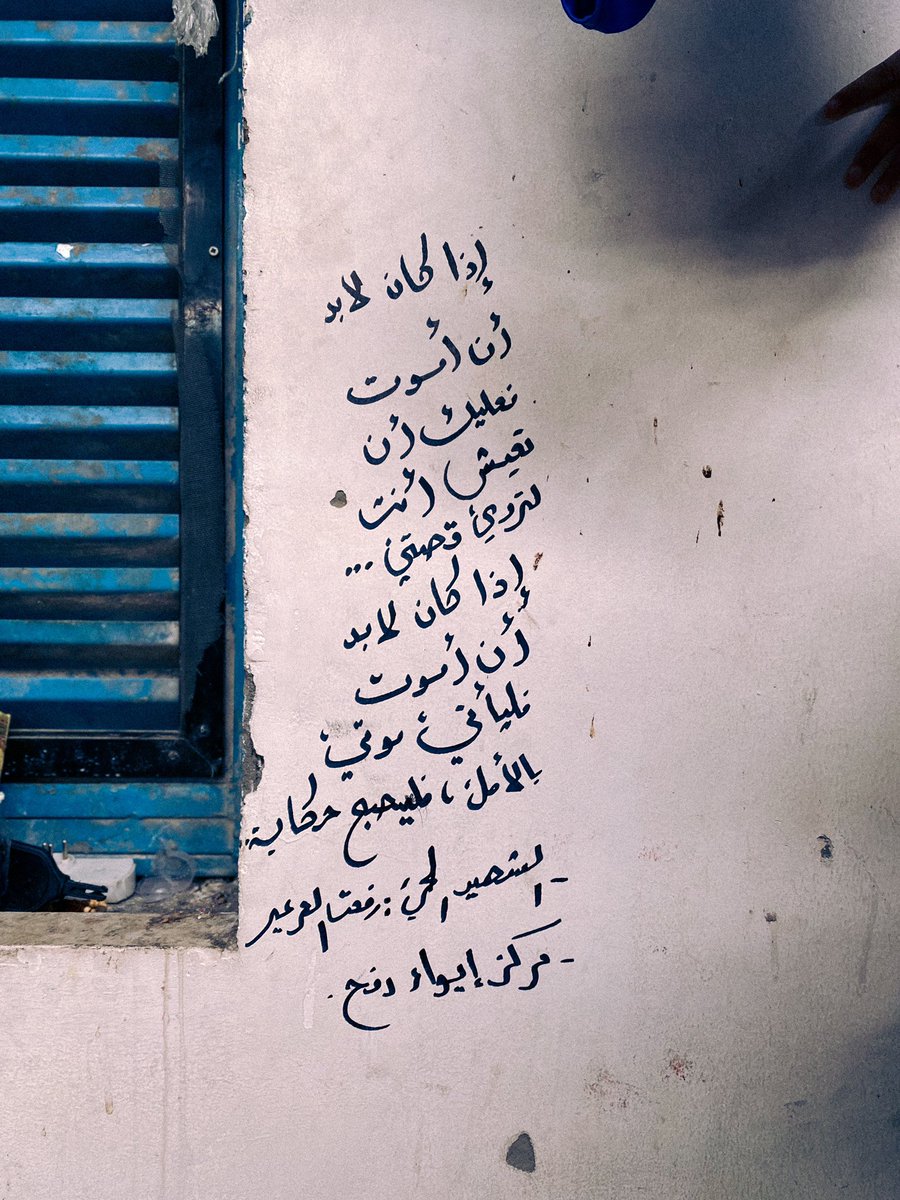 إذا كان لابد
أن أموت
فعليك أن
تعيش أنت
لتروي قصتي ...
إذا كان لابد
أن أموت
فليأتي موتي
بالأمل، فليصبح حكاية..
- الشهيد الحي: رفعت العرعير
- مركز إيواء رفح.